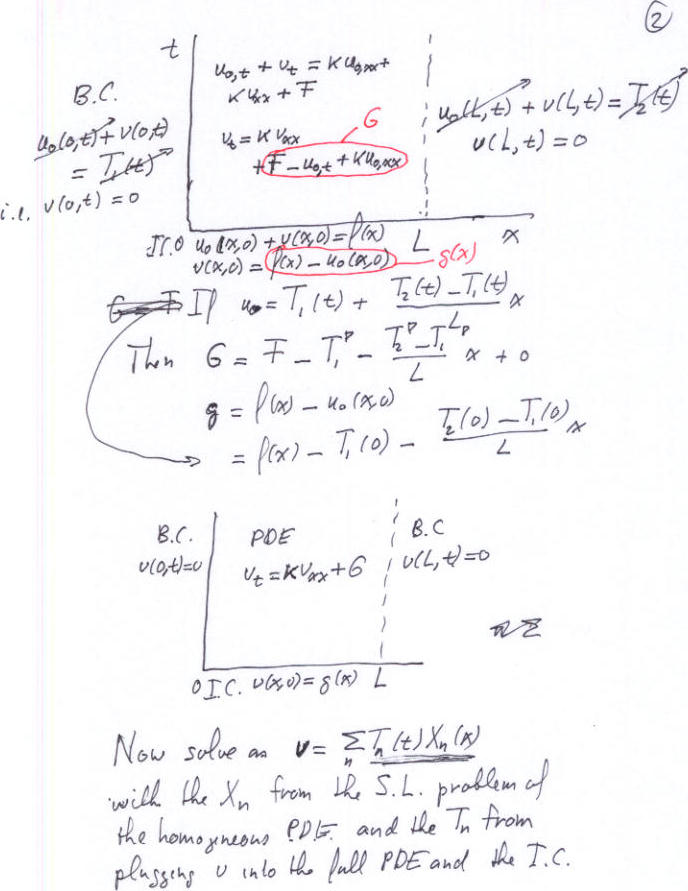 ②
t
B.C.
u₀(0,t) + v(0,t)
= T₁(t)
i.e. v(0,t) = 0
u₀,t + v_t = K u₀,xx +
K v_xx + F
v_t = K v_xx
+ F − u₀,t + K u₀,xx
G
u₀(L,t) + v(L,t) = T₂(t)
v(L,t) = 0
I.C. 0 u₀(x,0) + v(x,0) = f(x) L x
v(x,0) = f(x) − u₀(x,0) g(x)
If u₀ = T₁(t) + T₂(t) − T₁(t) / L x
Then G = F − T₁' − T₂' − T₁' / L x + 0
g = f(x) − u₀(x,0)
= f(x) − T₁(0) − T₂(0) − T₁(0) / L x
B.C. PDE B.C
v(0,t)=0 v_t = K v_xx + G v(L,t) = 0
0 I.C. v(x,0) = g(x) L
Now solve as v = Σ_n T_n(t) X_n(x)
with the X_n from the S.L. problem of
the homogneous PDE. and the T_n from
plugging v into the full PDE and the I.C.